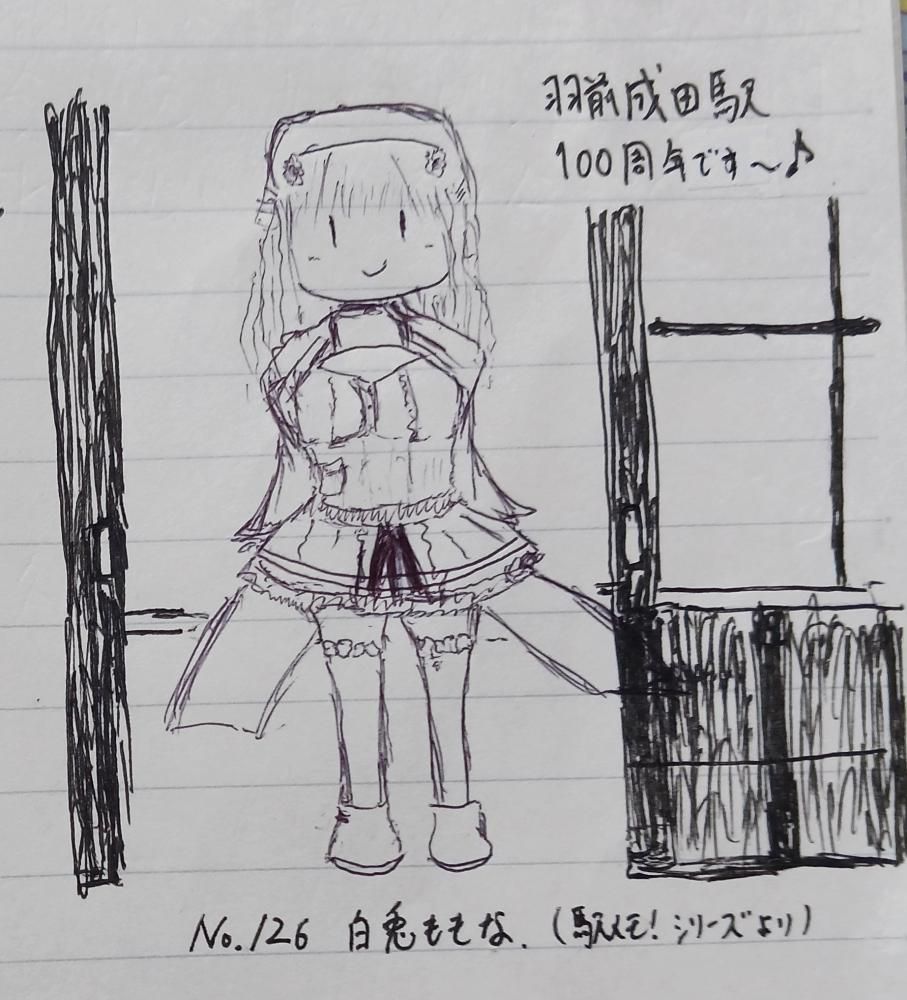 羽前成田駅
100周年です～♪
No.126 白兎ももな.(駅メモ!シリーズより)